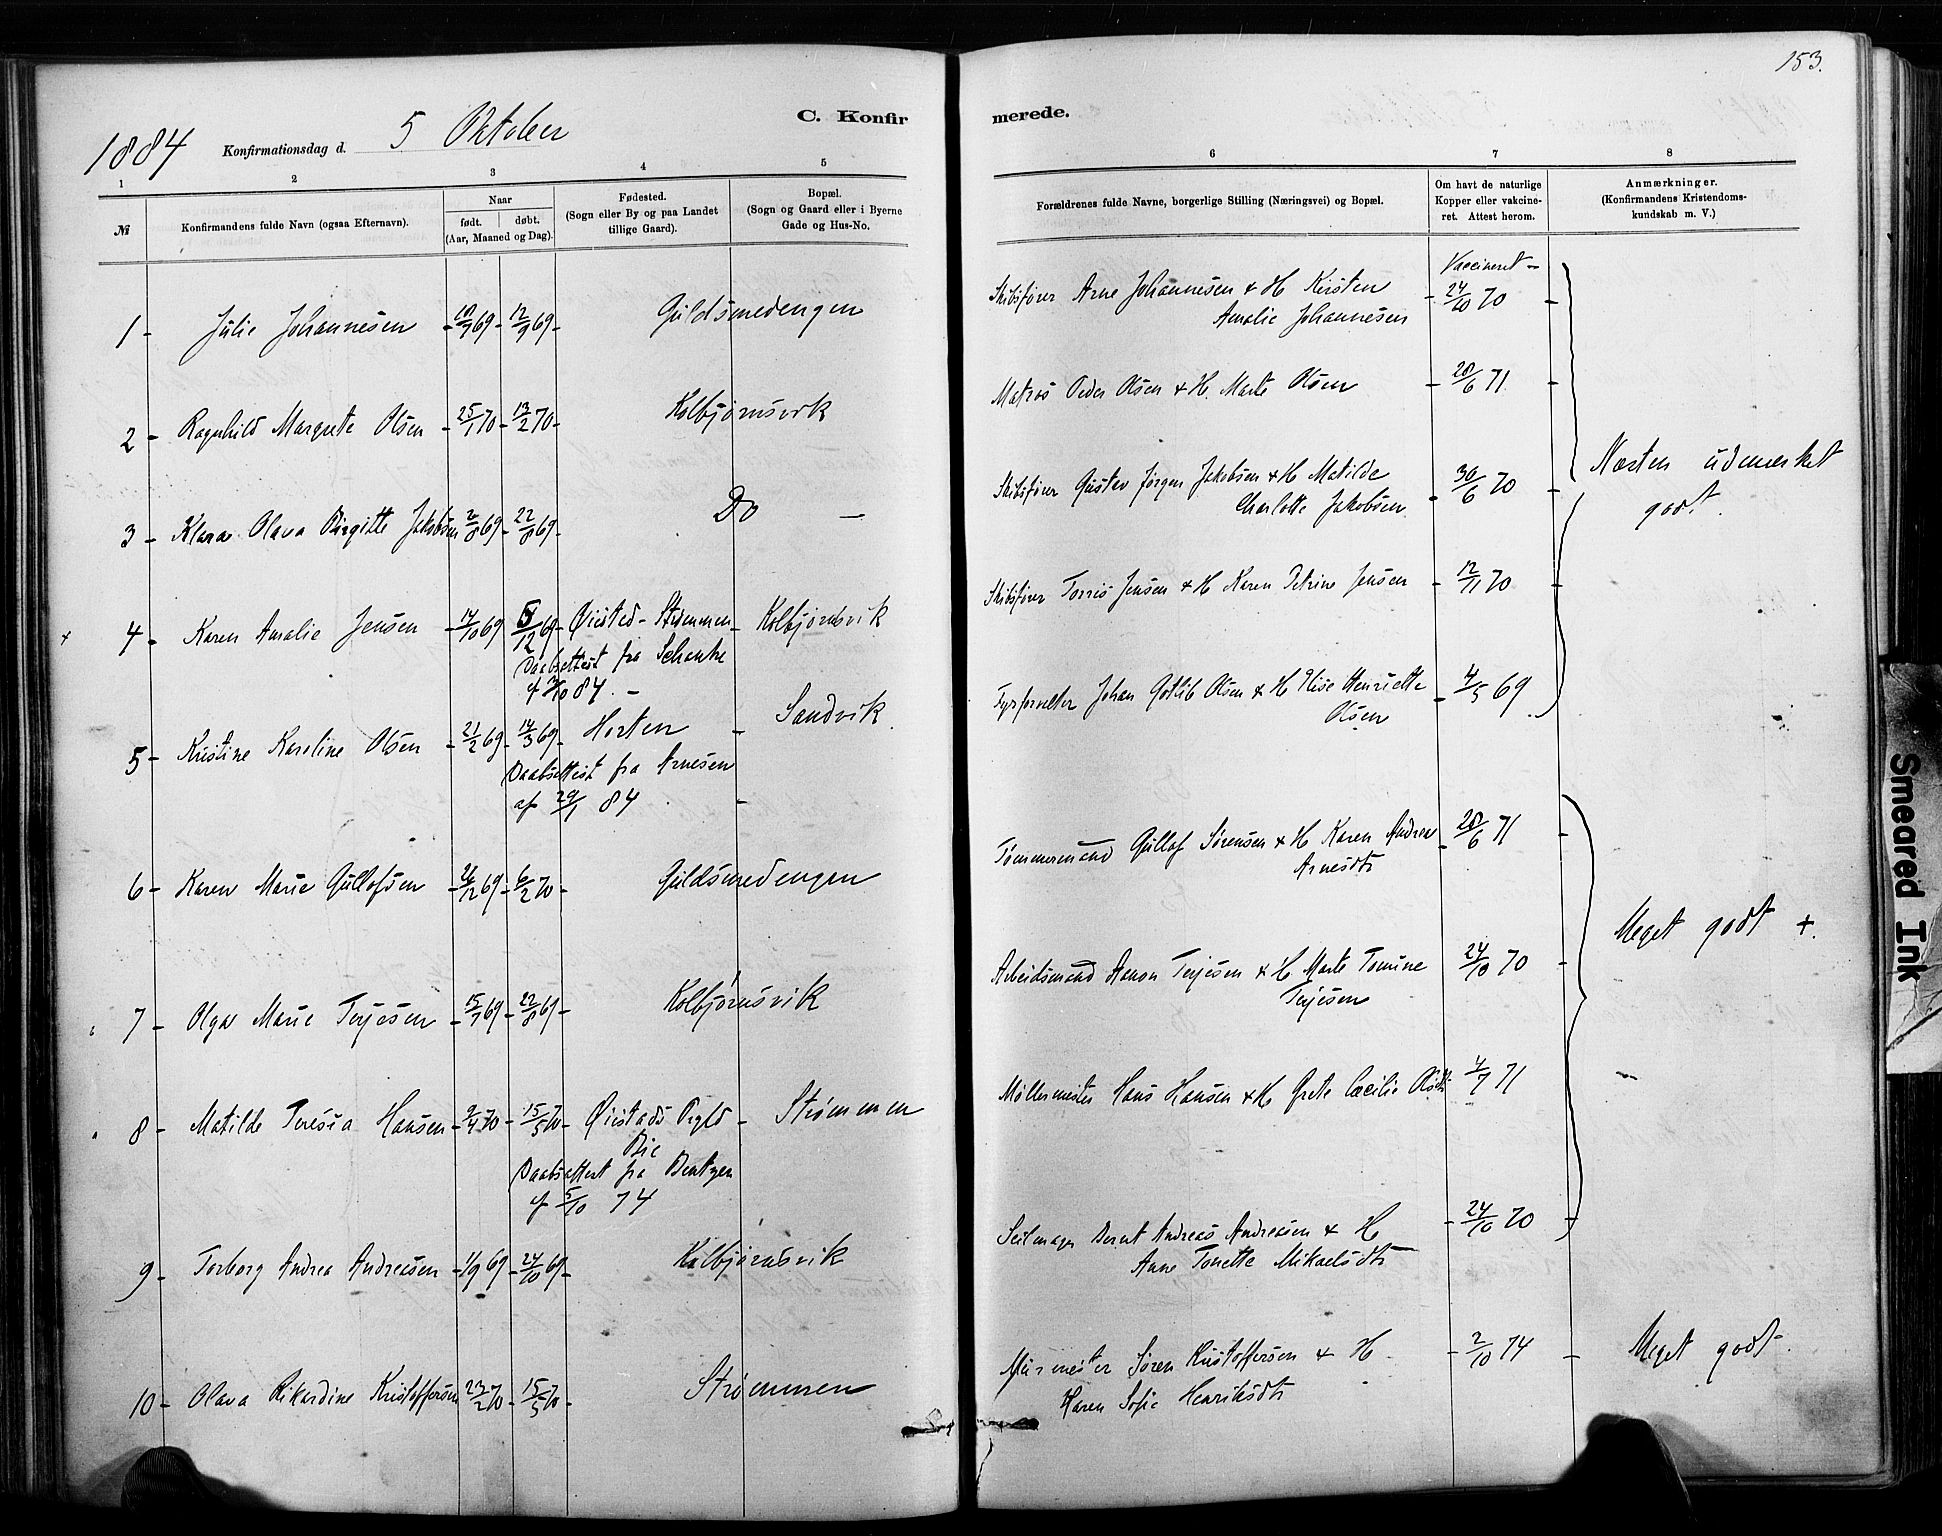 153.
1884 Konfirmationsdag d. 5 Oktober
C. Konfirmerede.
1 2 3 4 5 6 7 8
№
Konfirmandens fulde Navn (ogsaa Efternavn).
Naar
født. døbt.
(Aar, Maaned og Dag).
Fødested.
(Sogn eller By og paa Landet
tillige Gaard).
Bopæl.
(Sogn og Gaard eller i Byerne
Gade og Hus-No.
Forældrenes fulde Navne, borgerlige Stilling (Næringsvei) og Bopæl.
Om havt de naturlige
Kopper eller vakcine-
ret. Attest herom.
Anmærkninger.
(Konfirmandens Kristendoms-
kundskab m. V.)
Vaccineret -
1 - Julie Johannesen - 10/7 69 - 12/9 69 - Guldsmedengen
Skibsfører Arne Johannesen & H Kirsten
Amalie Johannesen - 24/10 70 -
2 - Ragnhild Margrete Olsen - 25/1 70 - 13/2 70 - Kolbjørnsvik
Matros Peder Olsen & H. Marte Olsen - 28/6 71 -
3 - Klara Olava Birgitte Jakobsen 2/8 69 - 22/8 69 - Do -
Skibsfører Gustav Jørgen Jakobsen & H Matilde
Charlotte Jakobsen - 30/6 70 -
Næsten udmærket
godt.
+ 4 - Karen Amalie Jensen - 14/10 69 - 5/12 69 - Øiestad - Strømmen - Kolbjørnsvik
Daabsattest fra Schanke
af 3/10 84. -
Skibsfører Torris Jensen & H Karen Petrine Jensen - 12/11 70 -
5 - Kristine Karoline Olsen - 21/2 69 - 14/3 69 - Horten - Sandvik
Daabsattest fra Arnesen
af 29/1 84 -
Fyrforvalter Johan Gotlib Olsen & H Elise Henriette
Olsen - 4/5 69
6 - Karen Marie Gullofsen - 26/12 69 - 6/2 70 - Guldsmedengen
Tømmermand Gullof Sørensen & H Karen Andrea
Arnesdt. - 28/6 71 -
Meget godt +.
7 - Olga Marie Terjesen - 15/7 69 - 22/8 69 - Kolbjørnsvik
Arbeidsmand Aanon Terjesen & H Marte Tomine
Terjesen 24/10 70 -
8 - Matilde Teresia Hansen - 9/4 70 - 15/5 70 - Øiestads Prgld - Strømmen
Bie
Daabsattest fra Bentzen
af 5/10 74
Møllermester Hans Hansen & H Grete Cecilie Olsdt. 4/7 71 -
9 - Torborg Andrea Andreasen - 1/9 69 - 24/10 69 - Kolbjørnsvik
Seilmager Bernt Andreas Andreasen & H
Anne Tonette Mikaelsdt. - 24/10 70 -
10 - Olava Rikardine Kristoffersen 23/2 70 - 15/5 70 - Strømmen
Murmester Søren Kristoffersen & H
Karen Sofie Henriksdt. - 2/10 74 -
Meget godt.
Smeared Ink